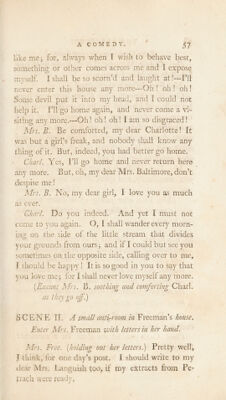 A COMEDY. 57
like me; for, always when I wish to behave best,
something or other comes across me and I expose
myself. I shall be so scorn'd and laught at!—I'll
never enter this house any more—Oh! oh! oh!
Some devil put it into my head, and I could not
help it. I'll go home again, and never come a vi-
siting any more.—Oh! oh! oh! I am so disgraced!
Mrs. B. Be comforted, my dear Charlotte! It
was but a girl's freak, and nobody shall know any
thing of it. But, indeed, you had better go home.
Charl. Yes, I'll go home and never return here
any more. But, oh, my dear Mrs. Baltimore, don't
despise me!
Mrs. B. No, my dear girl, I love you as much
as ever.
Charl. Do you indeed. And yet I must not
come to you again. O, I shall wander every morn-
ing on the side of the little stream that divides
your grounds from ours; and if I could but see you
sometimes on the opposite side, calling over to me,
I should be happy! It is so good in you to say that
you love me; for I shall never love myself any more.
(Exeunt Mrs. B. soothing and comforting Charl.
as they go off.)
SCENE II. A small anti-room in Freeman's house.
Enter Mrs. Freeman with letters in her hand.
Mrs. Free. (holding out her letters.) Pretty well,
I think, for one day's post. I should write to my
dear Mrs. Languish too, if my extracts from Pe-
trach were ready.